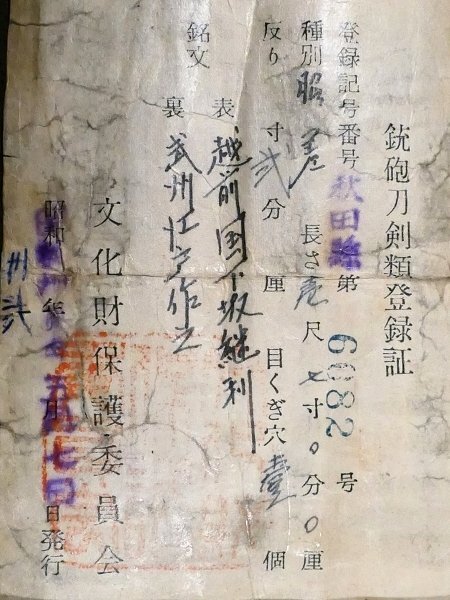 銃砲刀剣類登録証
登録記号番号 秋田縣 第 6082 号
種別 脇差 長さ 壱尺 七寸 0分 0厘
反り 寸 弐分 厘 目くぎ穴 壹個
銘文 表 越前国下坂継利
裏 武州江戸作之
文化財保護委員会
昭和 年 月 七日 日発行
卅弐